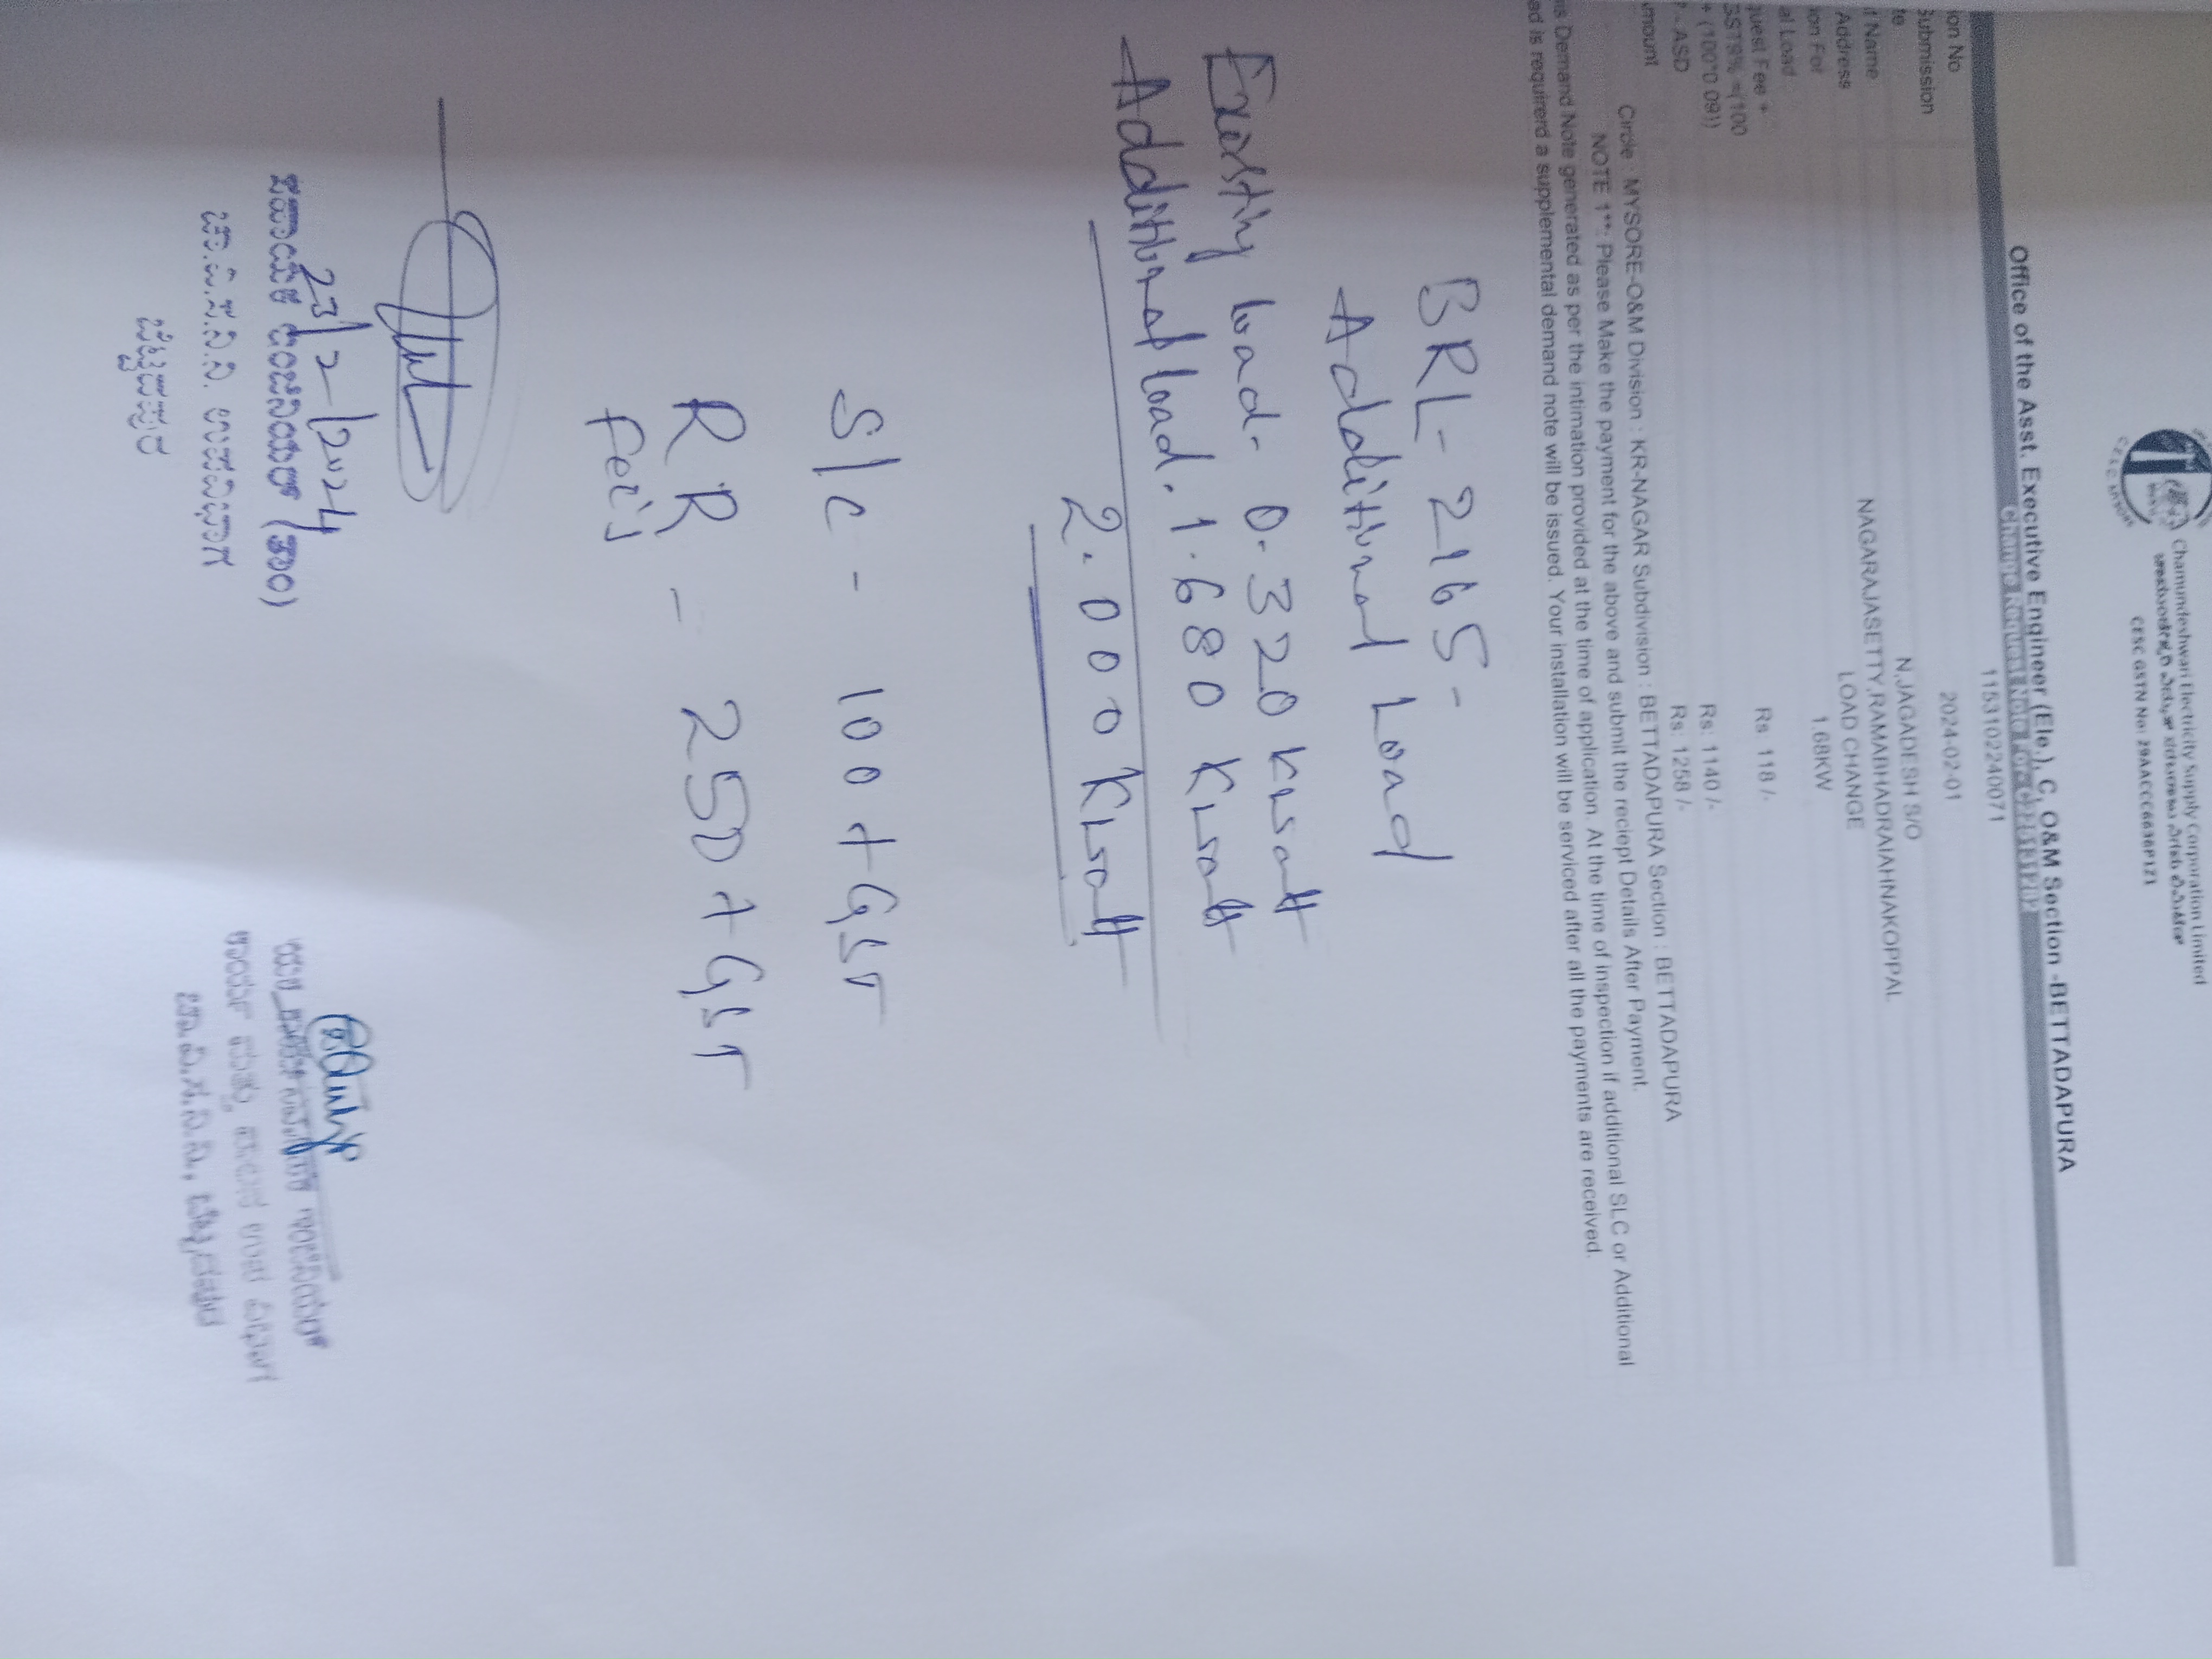 Chamundeshwari Electricity Supply Corporation Limited
CESC GSTN No: 29AACCC6636P1Z1
Office of the Asst. Executive Engineer (Ele.), C, O&M Section -BETTADAPURA
ion No 115310224071
Submission 2024-02-01
te
t Name N.JAGADESH S/O
Address NAGARAJASETTY,RAMABHADRAIAHNAKOPPAL
ion For LOAD CHANGE
al Load 1.68KW
quest Fee +
GST9% =(100 Rs. 118 /-
+ (100*0.09))
- ASD Rs: 1140 /-
mount Rs: 1258 /-
Circle : MYSORE-O&M Division : KR-NAGAR Subdivision : BETTADAPURA Section : BETTADAPURA
NOTE 1**: Please Make the payment for the above and submit the reciept Details After Payment.
is Demand Note generated as per the intimation provided at the time of application. At the time of inspection if additional SLC or Additional
ed is requirerd a supplemental demand note will be issued. Your installation will be serviced after all the payments are received.
BRL- 2165-
Additional Load
load. 0.320
Additional load. 1.680
2.000
S/C - 100 + GST
RR - 250 + GST
23/2/2024
ಸಹಾಯಕ ಇಂಜಿನಿಯರ್ (ಕಾಂ)
ಚಾ.ವಿ.ಸ.ನಿ.ನಿ. ಉಪವಿಭಾಗ
ಬೆಟ್ಟದಪುರ
ಚಾ.ವಿ.ಸ.ನಿ.ನಿ, ಬೆಟ್ಟದಪುರ